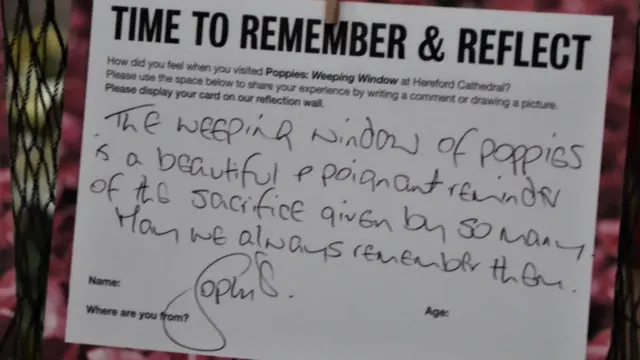 TIME TO REMEMBER & REFLECT
How did you feel when you visited Poppies: Weeping Window at Hereford Cathedral?
Please use the space below to share your experience by writing a comment or drawing a picture.
Please display your card on our reflection wall.
The weeping window of poppies
is a beautiful & poignant reminder
of the sacrifice given by so many.
May we always remember them.
Name:
Where are you from?
Age: